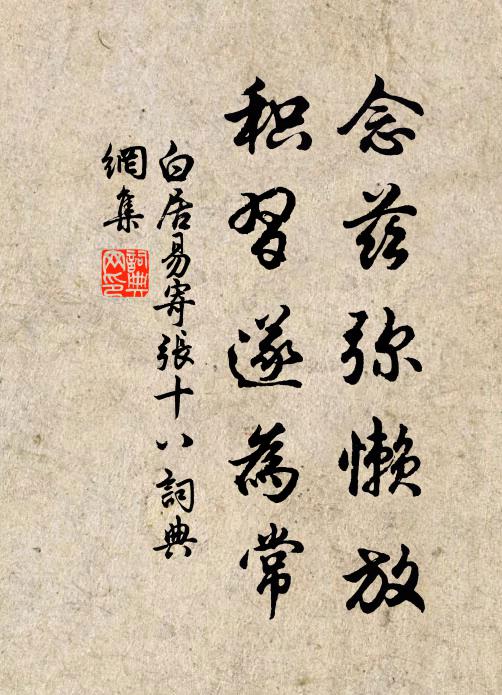 念兹弥懒放
积习遂為常
白居易寄張十八詞典
網集
詞典
网印